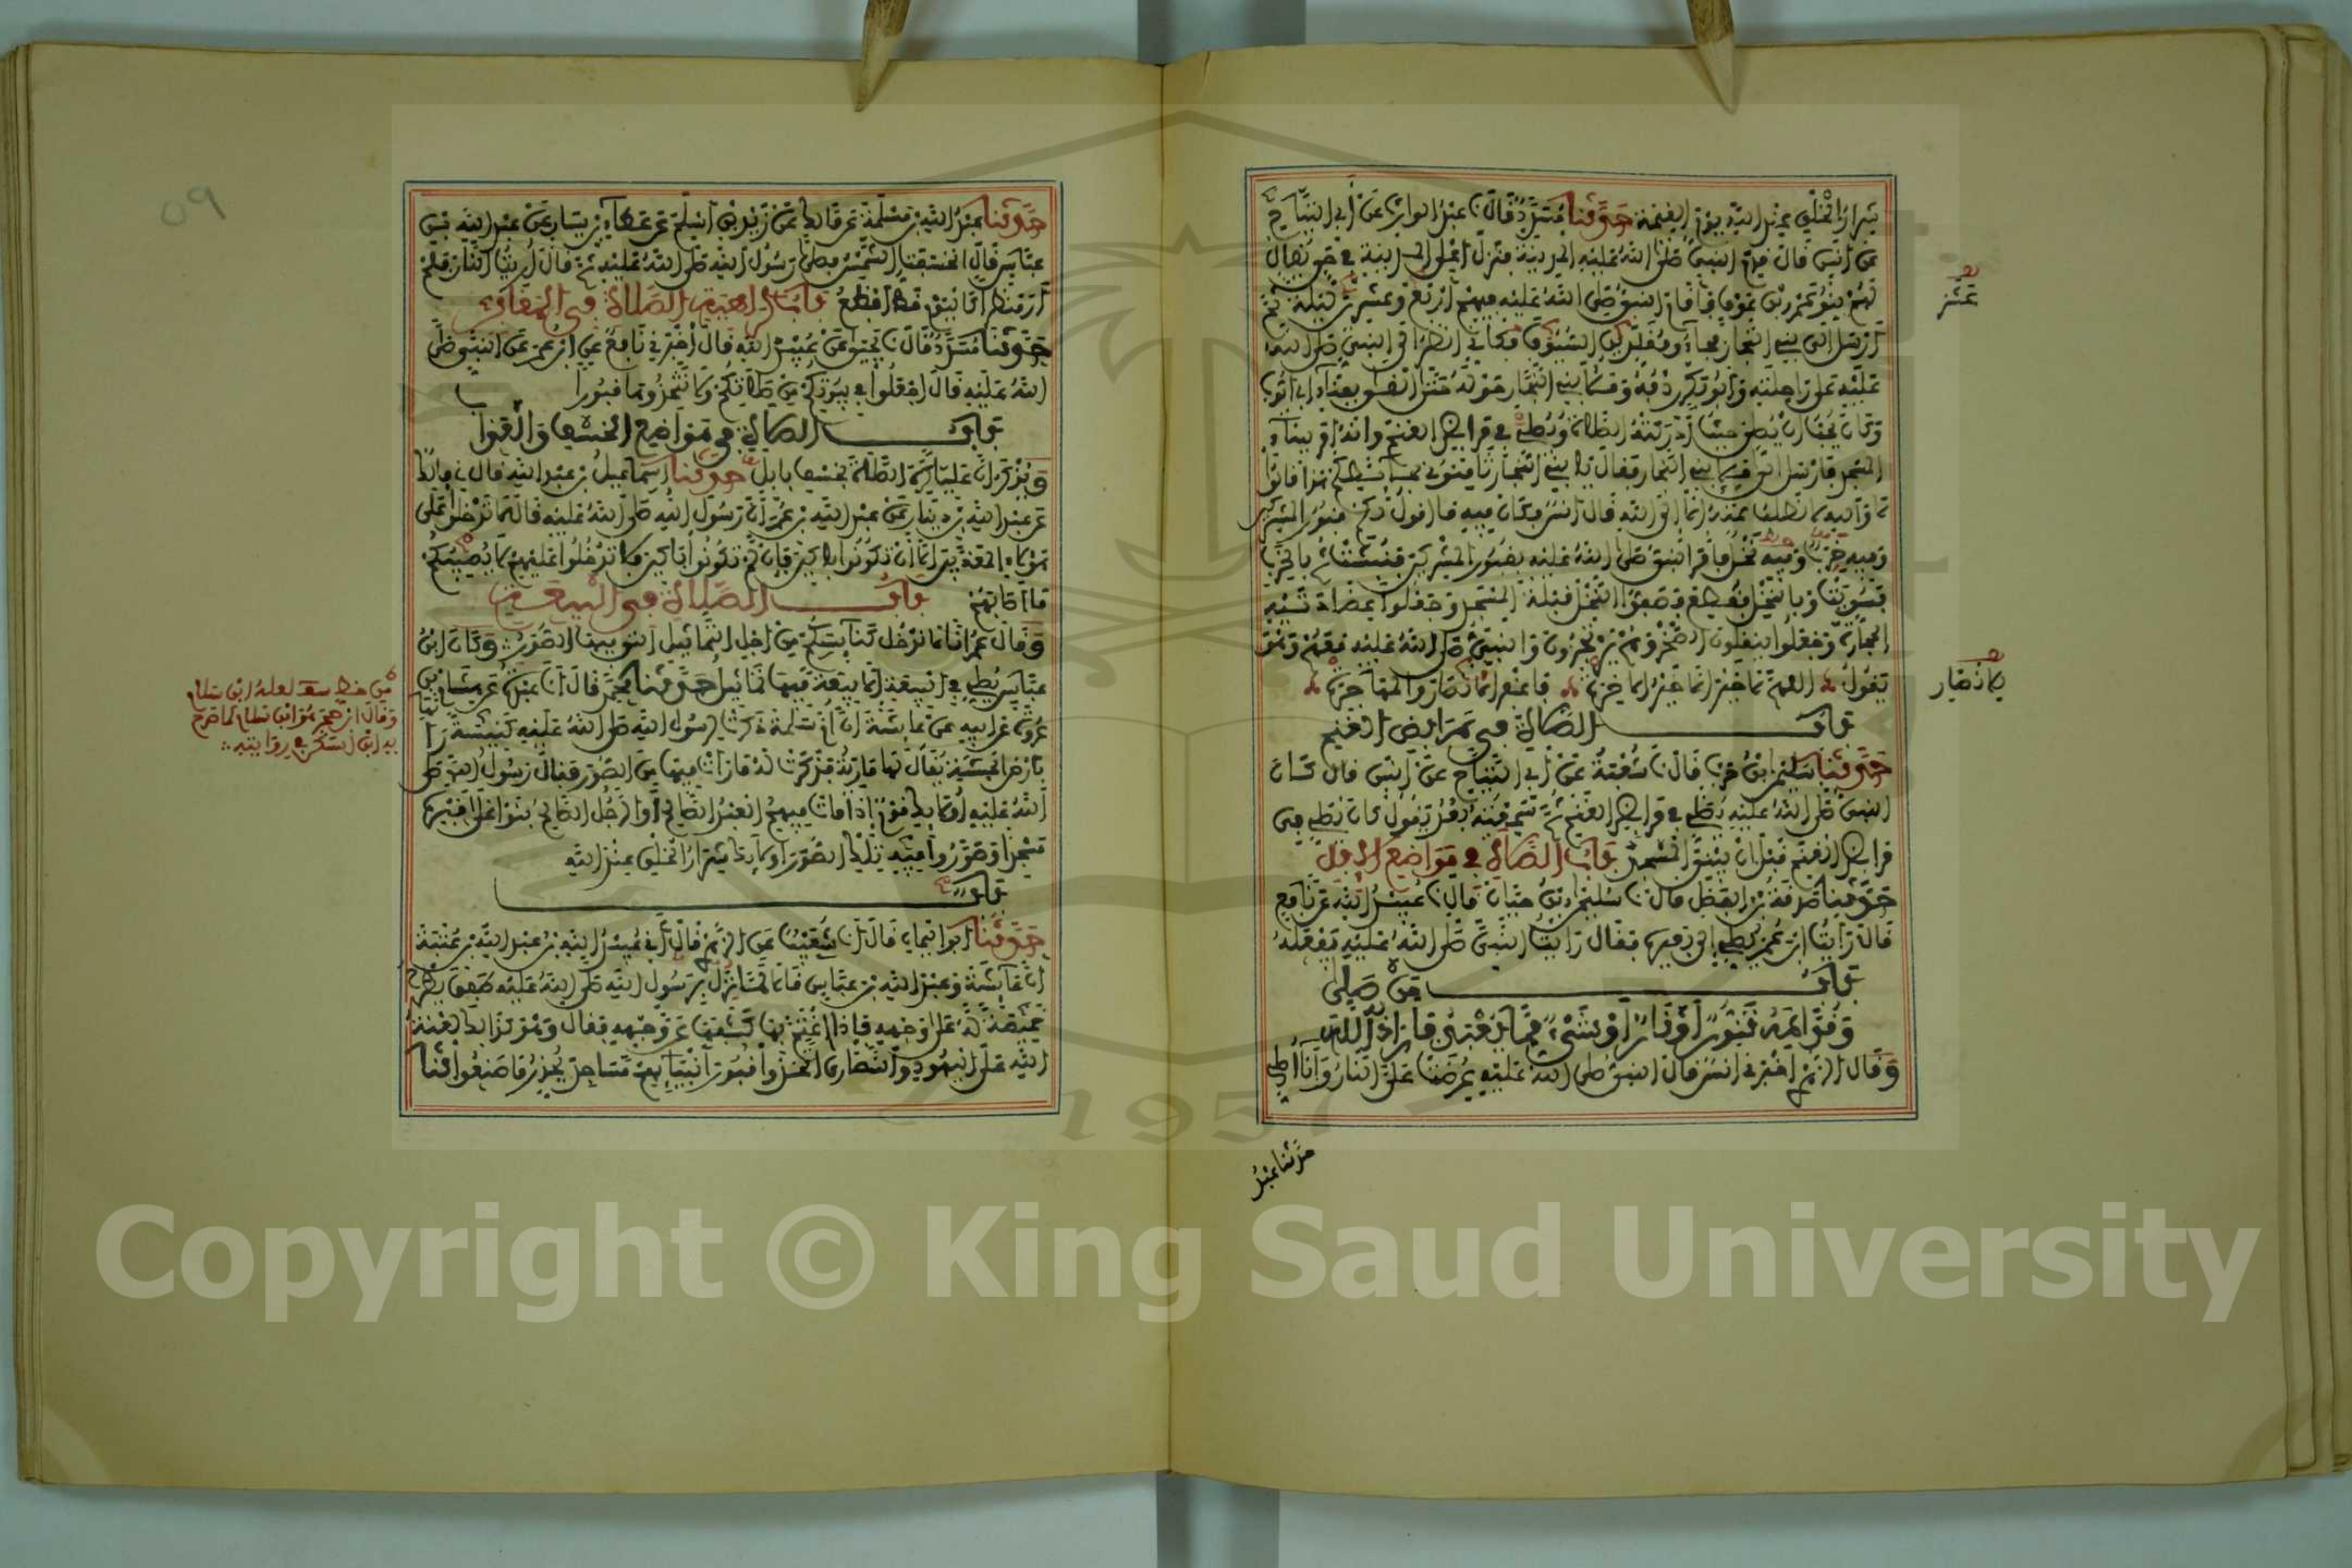 شرار الخلق عند الله يوم القيمة حدثنا مسدد قال نا عبد الوارث عن أبي التياح
عن أنس قال قدم النبي صلى الله عليه المدينة فنزل أعلى المدينة في حي يقال
لهم بنو عمرو بن عوف فأقام النبي صلى الله عليه فيهم أربع وعشرين ليلة ثم
عشر
أرسل إلى بني النجار فجاءو متقلدين السيوف فكأني أنظر إلى النبي صلى الله
عليه على راحلته وأبو بكر ردفه وملأ بني النجار حوله حتى ألقى بفناء أبي أيوب
وكان يحب أن يصلي حيث أدركته الصلاة ويصلي في مرابض الغنم وأنه أمر ببناء
المسجد فأرسل إلى ملإ بني النجار فقال يا بني النجار ثامنوني بحائطكم هذا قالوا
لا والله لا نطلب ثمنه إلا إلى الله قال أنس فكان فيه ما أقول لكم قبور المشركين
وفيه خرب وفيه نخل فأمر النبي صلى الله عليه بقبور المشركين فنبشت ثم بالخرب
فسويت وبالنخل فقطع فصفوا النخل قبلة المسجد وجعلوا عضادتيه
الحجارة وجعلوا ينقلون الصخر وهم يرتجزون والنبي صلى الله عليه معهم وهو
يقول اللهم لا خير إلا خير الآخرة فاغفر الأنصار والمهاجرة
للأنصار
باب الصلاة في مرابض الغنم
حدثنا سليمان بن حرب قال نا شعبة عن أبي التياح عن أنس قال كان
النبي صلى الله عليه يصلي في مرابض الغنم ثم سمعته بعد يقول كان يصلي في
مرابض الغنم قبل أن يبنى المسجد باب الصلاة في مواضع الإبل
حدثنا صدقة بن الفضل قال نا سليمان بن حيان قال نا عبيد الله عن نافع
قال رأيت ابن عمر يصلي إلى بعيره فقال رأيت النبي صلى الله عليه يفعله
باب من صلى
وقدامه تنور أو نار أو شيء مما يعبد فأراد به الله
وقال الزهري أخبرني أنس قال النبي صلى الله عليه عرضت علي النار وأنا أصلي
حدثنا عبد
حدثنا عبد الله بن مسلمة عن مالك عن زيد بن أسلم عن عطاء بن يسار عن عبد الله بن
عباس قال انخسفت الشمس فصلى رسول الله صلى الله عليه ثم قال أريت النار فلم
أر منظرا كاليوم قط أفظع باب كراهية الصلاة في المقابر
حدثنا مسدد قال نا يحيى عن عبيد الله قال أخبرني نافع عن ابن عمر عن النبي صلى
الله عليه قال اجعلوا في بيوتكم من صلاتكم ولا تتخذوها قبورا
باب الصلاة في مواضع الخسف والعذاب
ويذكر أن عليا كره الصلاة بخسف بابل حدثنا إسماعيل بن عبد الله قال نا مالك
عن عبد الله بن دينار عن عبد الله بن عمر أن رسول الله صلى الله عليه قال لا تدخلوا على
هؤلاء المعذبين إلا أن تكونوا باكين فإن لم تكونوا باكين فلا تدخلوا عليهم لا يصيبكم
ما أصابهم باب الصلاة في البيعة
وقال عمر إنا لا ندخل كنائسكم من أجل التماثيل التي فيها الصور وكان ابن
عباس يصلي في البيعة إلا بيعة فيها تماثيل حدثنا محمد قال أنا عبدة عن هشام بن
عروة عن أبيه عن عائشة أن أم سلمة ذكرت لرسول الله صلى الله عليه كنيسة رأتها
بأرض الحبشة يقال لها مارية فذكرت له ما رأت فيها من الصور فقال رسول الله صلى
الله عليه أولئك قوم إذا مات فيهم العبد الصالح أو الرجل الصالح بنوا على قبره
مسجدا وصوروا فيه تلك الصور أولئك شرار الخلق عند الله
باب
حدثنا أبو اليمان قال أنا شعيب عن الزهري قال أني عبيد الله بن عبد الله بن عتبة
أن عائشة وعبد الله بن عباس قالا لما نزل برسول الله صلى الله عليه طفق يطرح
خميصة له على وجهه فإذا اغتم بها كشفها عن وجهه فقال وهو كذلك لعنة
الله على اليهود والنصارى اتخذوا قبور أنبيائهم مساجد يحذر ما صنعوا حدثنا
من خط سعد لعله ابن سلام
وقال ابن حجر هو ابن سلام كما صرح
به ابن السكن في روايته
٥٩
1957
Copyright © King Saud University